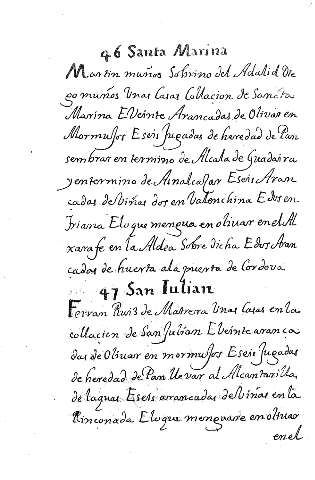 46 Santa Marina
Martin muños Sobrino del Adalid Die
go muños Unas Casas Collacion de Sancta
Marina E Veinte Arancadas de Olivar en
Mormujos E seis Jugadas de heredad de Pan
sembrar en termino de Alcala de Guadaira
y en termino de Aznalcasar E seis Aran
cadas de Viñas dos en Valenchina E dos en
Triana E lo que mengua en olivar en el Al
xarafe en la Aldea Sobre dicha E dos Aran
cadas de huerta a la puerta de Cordova
47 San Iulian
Ferran Ruis de Matrera Unas Casas en la
collacion de San Julian E Veinte aranca
das de Olivar en mormujos E seis Jugadas
de heredad de Pan Llevar al Alcantarilla
de laguas E seis arrancadas de Viñas en la
Rinconada E lo que menguare en olivar
en el